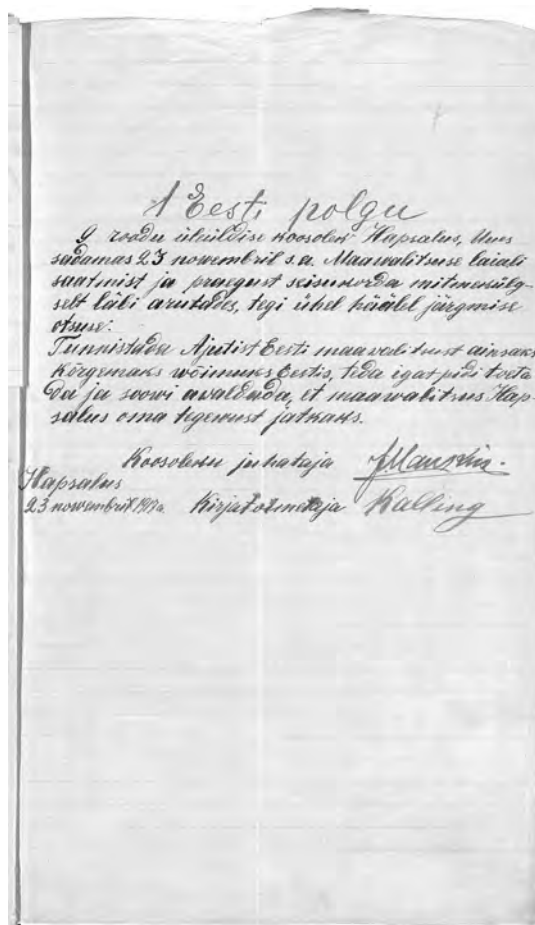 1 Eesti polgu
9 roodu üleüldise koosolek Hapsalus, Uues
sadamas 23 novembril s.a. Maawalitsuse laiali
saatmist ja praegust seisukorda mitmekülg-
selt läbi arutades, tegi ühel häälel järgmise
otsuse:
Tunnistada Ajutist Eesti maavalitsust ainsaks
kõrgemaks wõimuks Eestis, teda igat pidi toeta
da ja soowi awaldada, et maawalitsus Hap-
salus oma tegewust jätkaks.
Koosoleku juhataja
Hapsalus
23 novembril 1917a. Kirjatoimetaja Kalling